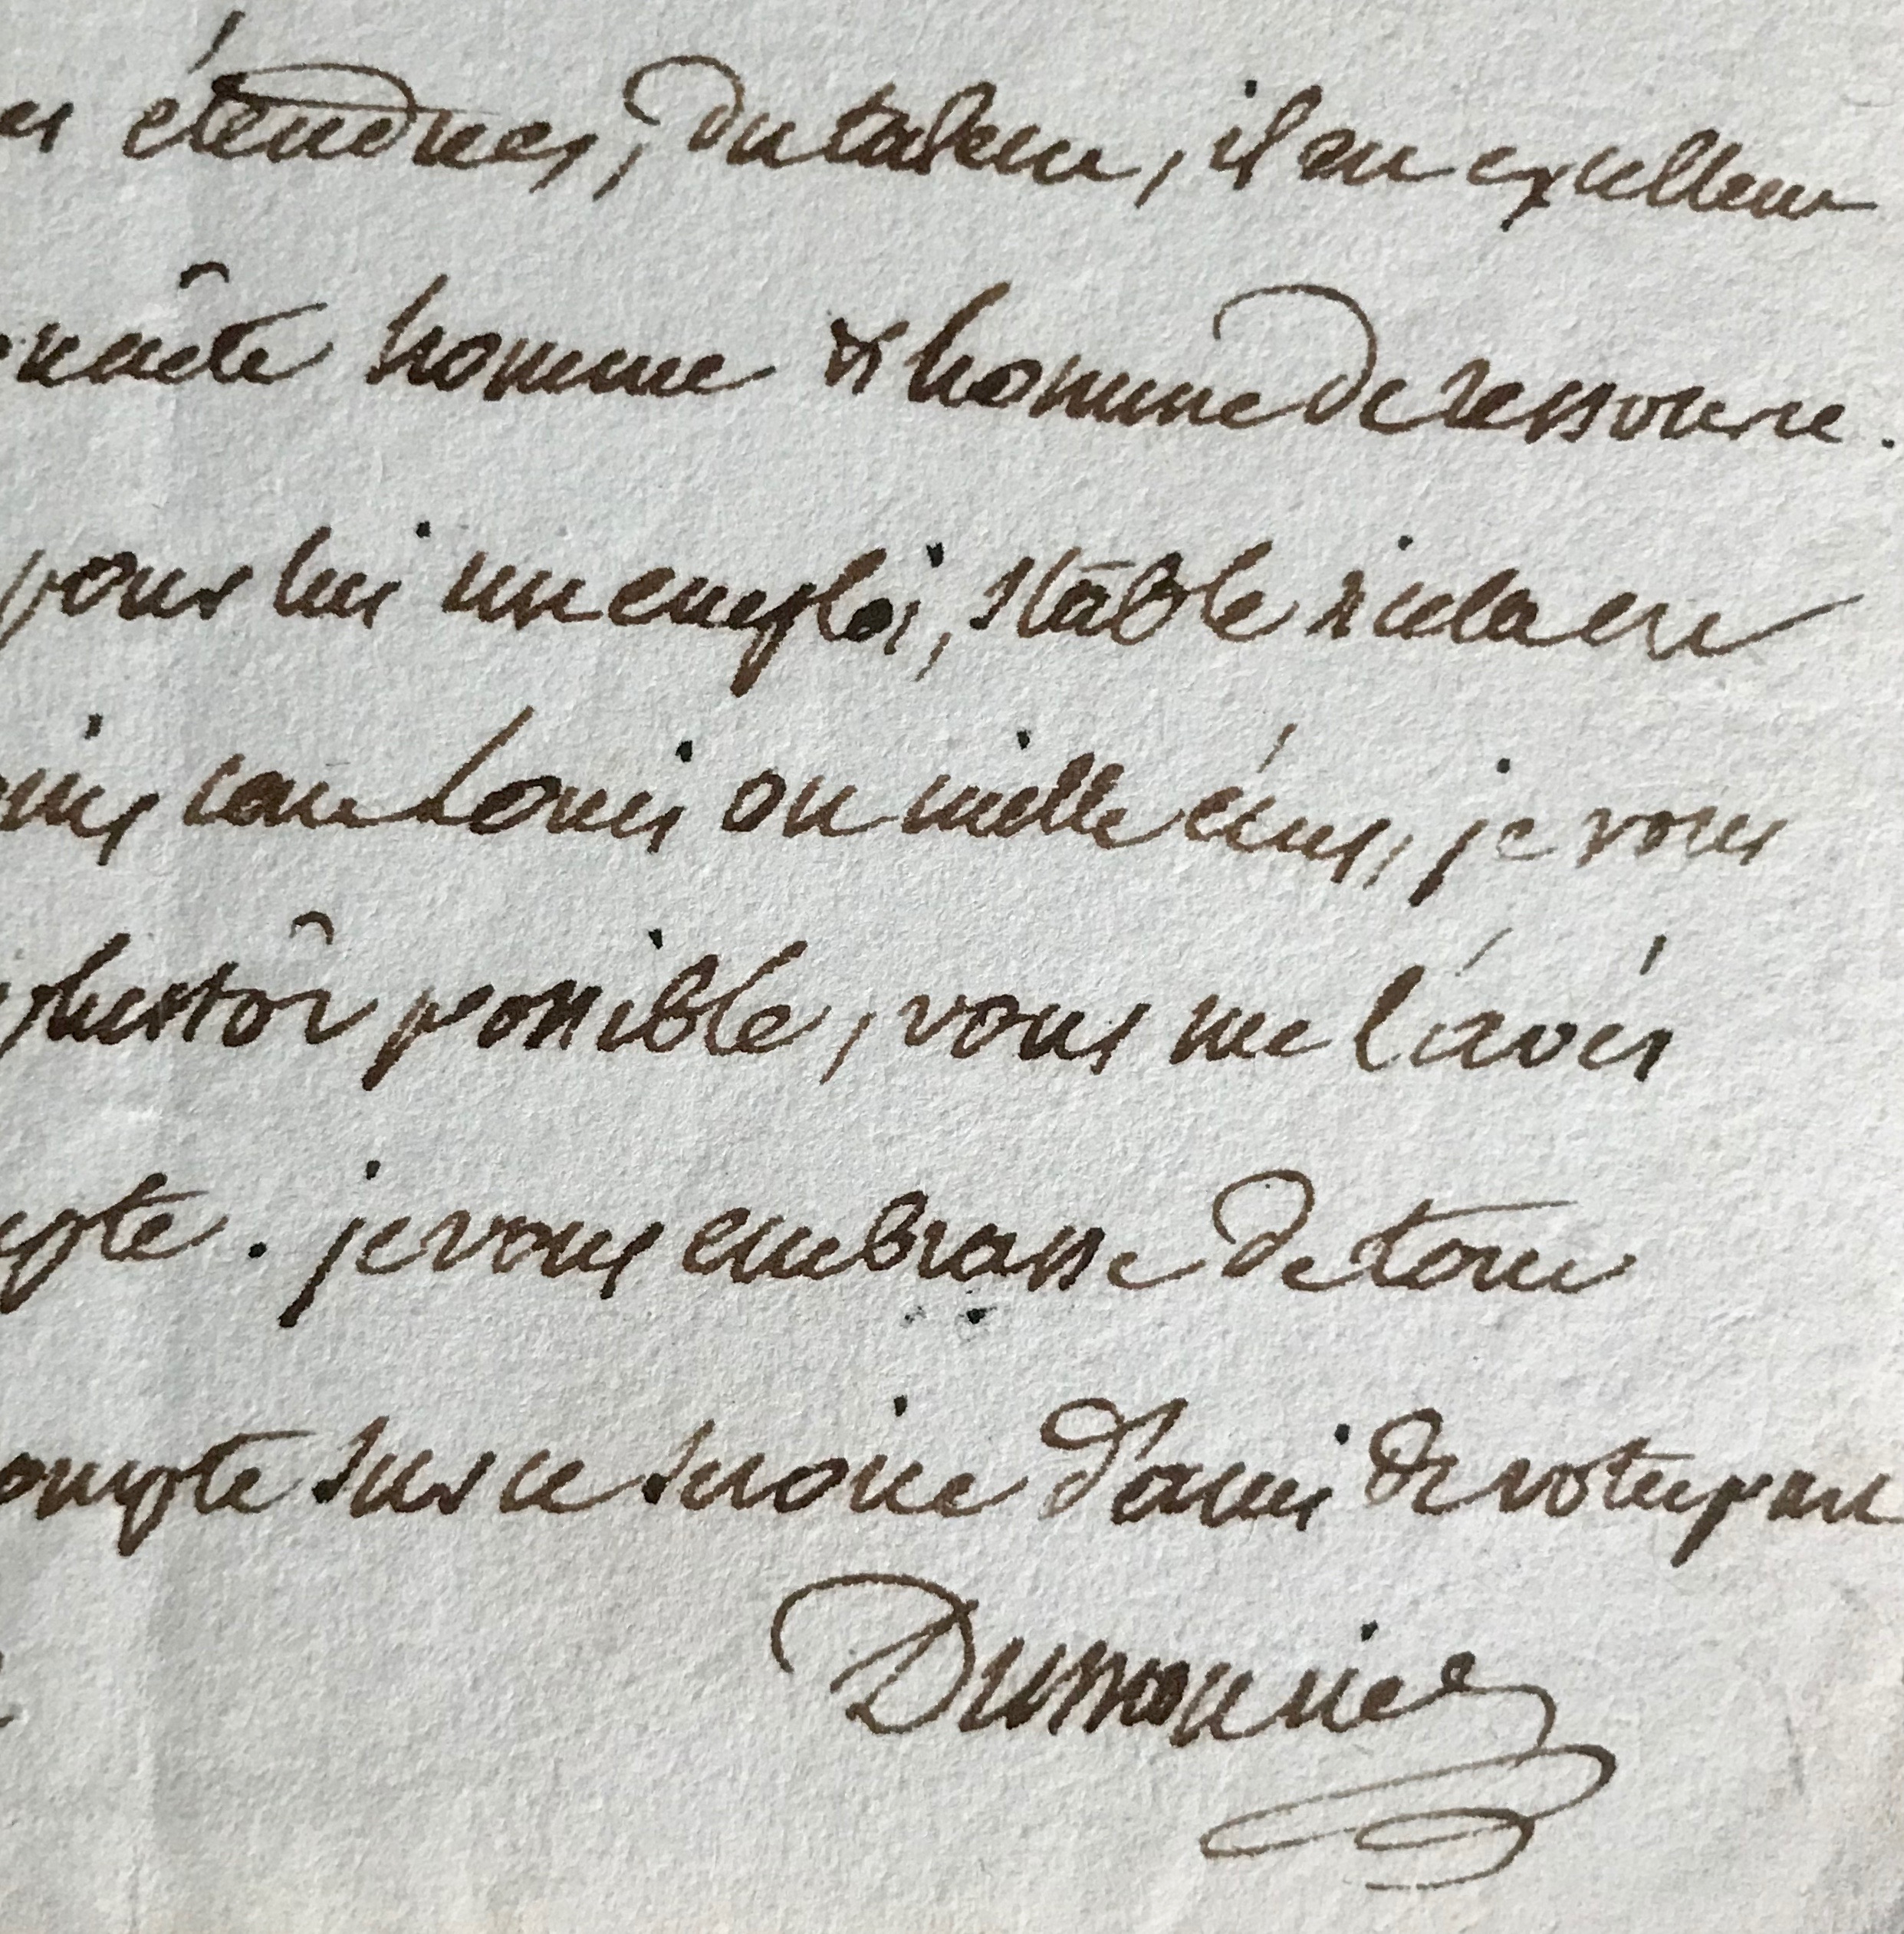 es étendues, du talent, il est excellent
onnête homme et homme de ressource.
pour lui un emploi, stable si cela est
cent Louis ou mille écus, je vous
plustôt possible, vous me l'avés
mpte. je vous embrasse de tout
ompte sur ce service d'ami de votre part
Dussaunier